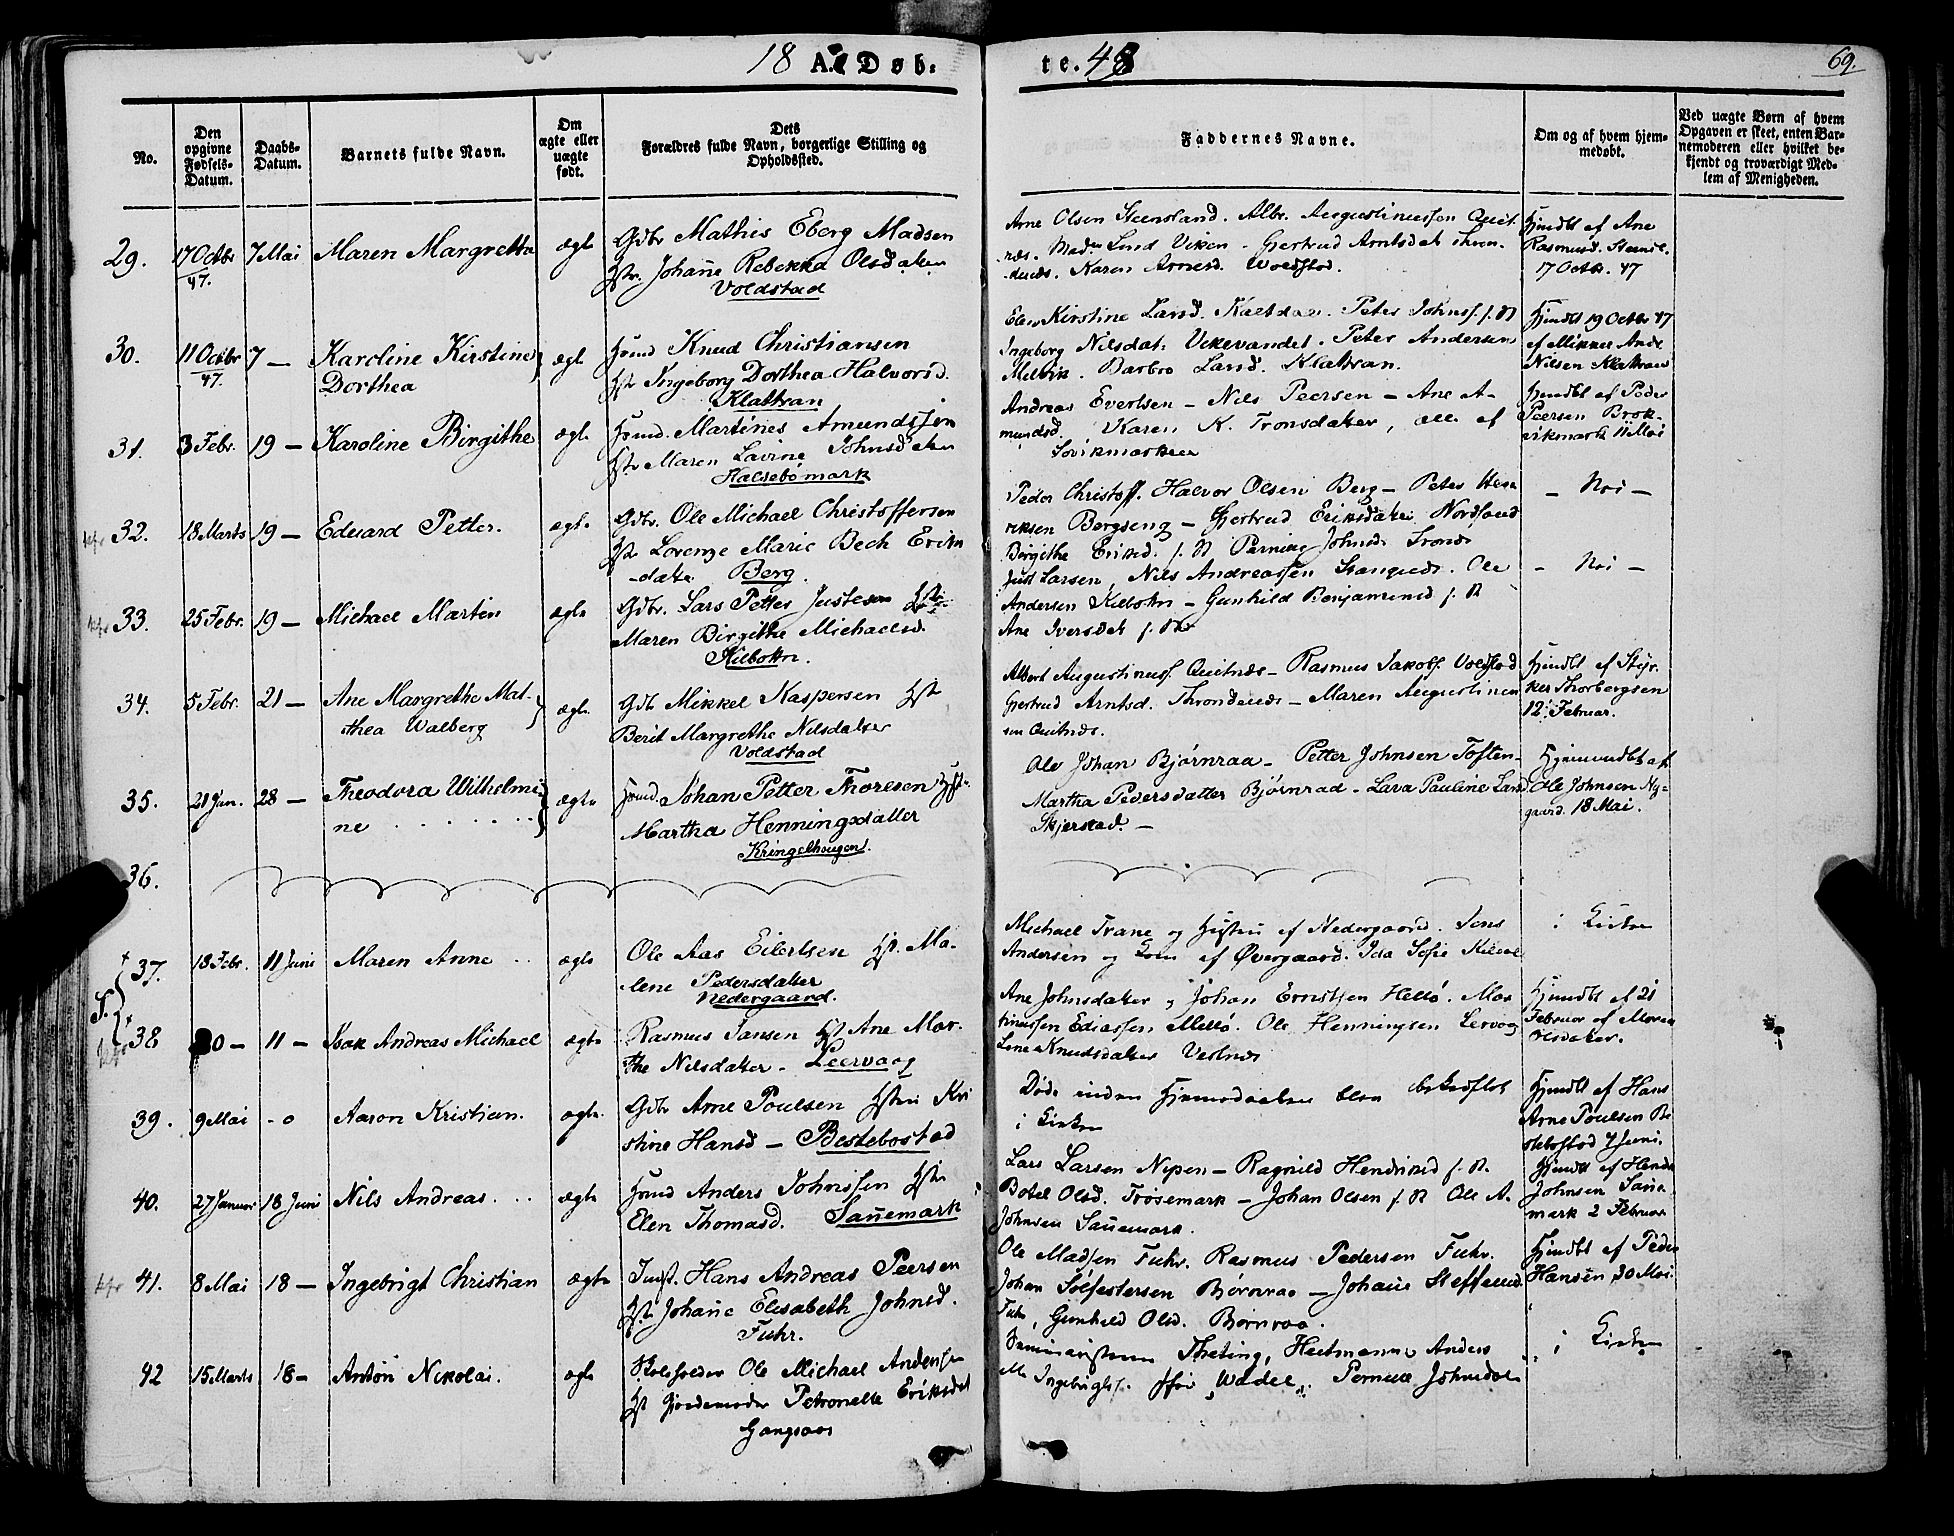 18 A. Døb:
te. 48
69.
No.
Den opgivne Fødsels-Datum.
Daabs-Datum.
Barnets fulde Navn.
Om ægte eller uægte født.
Dets Forældres fulde Navn, borgerlige Stilling og Opholdssted.
Faddernes Navne.
Om og af hvem hjemmedøbt.
Ved uægte Børn af hvem Opgaven er skeet, enten Barnemoderen eller hvilket bekjendt og troværdigt Medlem af Menigheden.
29. 17 Octbr 47. 7 Mai Maren Margretha ægte Gdbr Mathis Eberg Madsen
Hstr. Johañe Rebekka Olsdatter
Voldstad
Arne Olsen Steensland. Albr. Augustinussen Quit-
næs. Gjertrud Arntsdat
Karen Arnesd. Woldstad.
Hjmdbt af Ane
Rasmusd.
17 Octb. 47
30. 11 Octbr 47. 7 — Karoline Kirstine
Dorthea
ægte Hsmd Knud Christiansen
Hstr Ingeborg Dorthea Halvorsd.
Klattran
Elen Kirstine Larsd. Peter Johns. s. St
Ingeborg Nilsdat. Vikevandet. Peter Andersen
Melvik. Barbro Larsd. Klattran.
Hjmdbt 19 Octbr 47
af Mikkel And.
Nilsen Klattran
31. 3 Febr. 19 — Karoline Birgithe ægte Hsmd. Martines Amundssen
Hstr Maren Lavine Johnsdatter
Halsebømark
Andreas Evertsen — Nils Peersen — Ane A-
mundsd. Karen K. Tronsdatter, alle af
Søvikmarken
Hjmdbt af Peder
Peersen Brok-
vikmark 11 Mai
32. 18 Marts 19 — Eduard Petter. ægte Gdbr. Ole Michael Christoffersen
Hstr Lorenze Marie Bech Eriks
-datter Berg.
Peder Christoff. Halvor Olsen Berg — Peter Hen
riksen Bergseng — Gjertrud Eriksdatter Nordsand
Birgithe Eriksd. s. St Johnsd.
— Nei —
33. 25 Febr. 19 — Michael Martin ægte Gdbr. Lars Petter Justesen Hstr
Maren Birgithe Michaelsd.
Kilbotn.
Just Larsen, Nils Andreassen Stangnes. Ole
Andersen Kilbotn — Gunhild Benjaminsd s. St
Ane Iversdat s. St
— Nei —
34. 5 Febr. 21 — Ane Margrethe Mat-
thea Walberg
ægte Gdbr Mikkel Kaspersen Hstr
Berit Margrethe Nilsdatter
Voldstad
Albert Augustinuss. Quitnæs — Rasmus Jakobs. Voldstad
Gjertrud Arntsd. Throndenæs — Maren Augustinus
sen Quitnæs.
Hjmdbt af Styr-
ker Thorbergsen
12 Februar.
35. 21 Jan. 28 — Theodora Wilhelmi
ne . . . . . .
ægte Hsmd. Johan Petter Thoresen Hstr.
Martha Henningsdatter
Kringelhougen.
Ole Johan Bjørnraa — Petter Johnsen Toften —
Martha Pedersdatter Bjørnraa — Lava Pauline Larsd
Skjerstad. —
Hjemmedbt af
Ole Johnsen Ny-
gaard. 18 Mai.
36.
37. 18 Febr. 11 Juni Maren Anne . . ægte Ole Aas Eilertsen Hst. Ma-
lene Pedersdatter
Nedergaard.
Michael Trane og Hustru af Nedergaard. Jens
Andersen og Kone af Øvergaard. Ida Sofie
i Kirken
38 20 — 11 — Isak Andreas Michael ægte Rasmus Jansen Hst Ane Mar-
the Nilsdatter — Leervaag
Ane Johnsdatter Johan Ernstsen Hellø. Mar
tinussen Ediassen Mellø. Ole Henningsen Lervaag
Lene Knudsdatter Vestnæs
Hjmdbt af 21
Februar af Maren
Olsdatter.
39. 9 Mai - o Aaron Kristian. ægte. Gdbr Arne Poulsen Hstru Kri
stine Hansd — Bestebostad
Døde inden Hjemmedaaben blev bekræftet
i Kirken
Hjmdbt af Hans
Arne Poulsen Be
stebostad 7 Juni.
40. 27 Januar 18 Juni Nils Andreas . . . ægte Hsmd Anders Johnssen Hstr
Elen Thomasd. Sañemark
Lars Larsen Nypen — Ragnild Hendriksd s. St.
Botel Olsd. Trøsemark — Johan Olsen s. St Ole A.
Johnsen Sañemark.
Hjmdbt af Hendr.
Johnsen Sañe-
mark 2 Februar
41. 8 Mai 18 — Ingebrigt Christian ægte Indst. Hans Andreas Peersen
Hstr Johañe Elisabeth Johnsd.
Fuhr.
Ole Madsen Fuhr. Rasmus Pedersen Fuhr.
Johan Solfestersen Bjørnraa — Johañe Steffensd.
Fuhr, Gunhild Olsd. Bjørnraa.
Hjmdbt af Peder
Hansen, 30 Mai.
42 15 Marts 18 — Anton Nikolai. ægte Skoleholder Ole Michael Andersen
Hst Gjordemoder Petronelle Eriksdat
Gangsaas
Seminaristerne Theting, Heitmann, Anders
M. Ingebrigts. Wadel. Pernelle Johnsdat
i Kirken